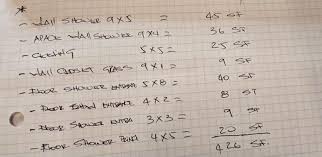 *
- WALL SHOWER 9x5 = 45 SF
- WALL SHOWER 9x4 = 36 SF
- 5x5 = 25 SF
- WALL CLOSET GLASS 9x1 = 9 SF
- FLOOR SHOWER 5x8 = 40 SF
- FLOOR ENTRANCE 4x2 = 8 SF
- FLOOR SHOWER ENTRA 3x3 = 9 SF
- FLOOR SHOWER 4x5 = 20 SF
426 SF